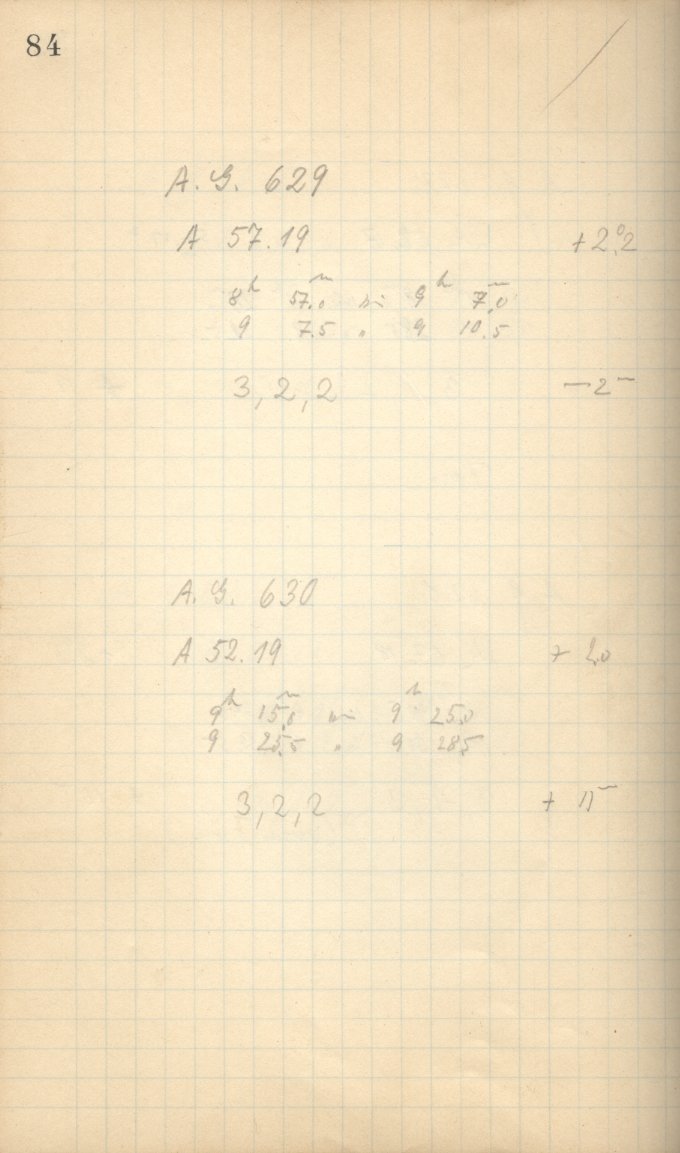 84
A. G. 629
A 57.19 +2°.2
8h 57.0m bis 9h 7.0m
9 7.5 " 9 10.5
3, 2, 2 —2m
A. G. 630
A 52.19 + 2.0
9h 15.0m bis 9h 25.0
9 25.5 " 9 28.5
3, 2, 2 + 11m